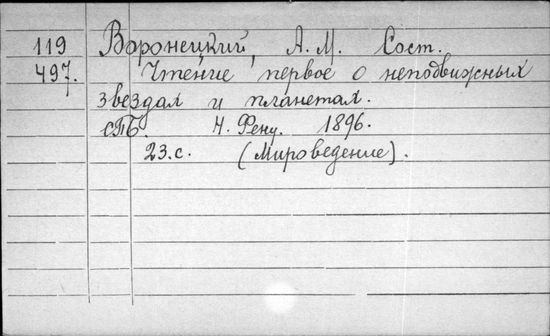 119 Воронецкий, А. М. Сост.
497. Чтение первое о неподвижных
звездах и планетах.
СПБ. Н. Фену. 1896.
23.с. (Мироведение).